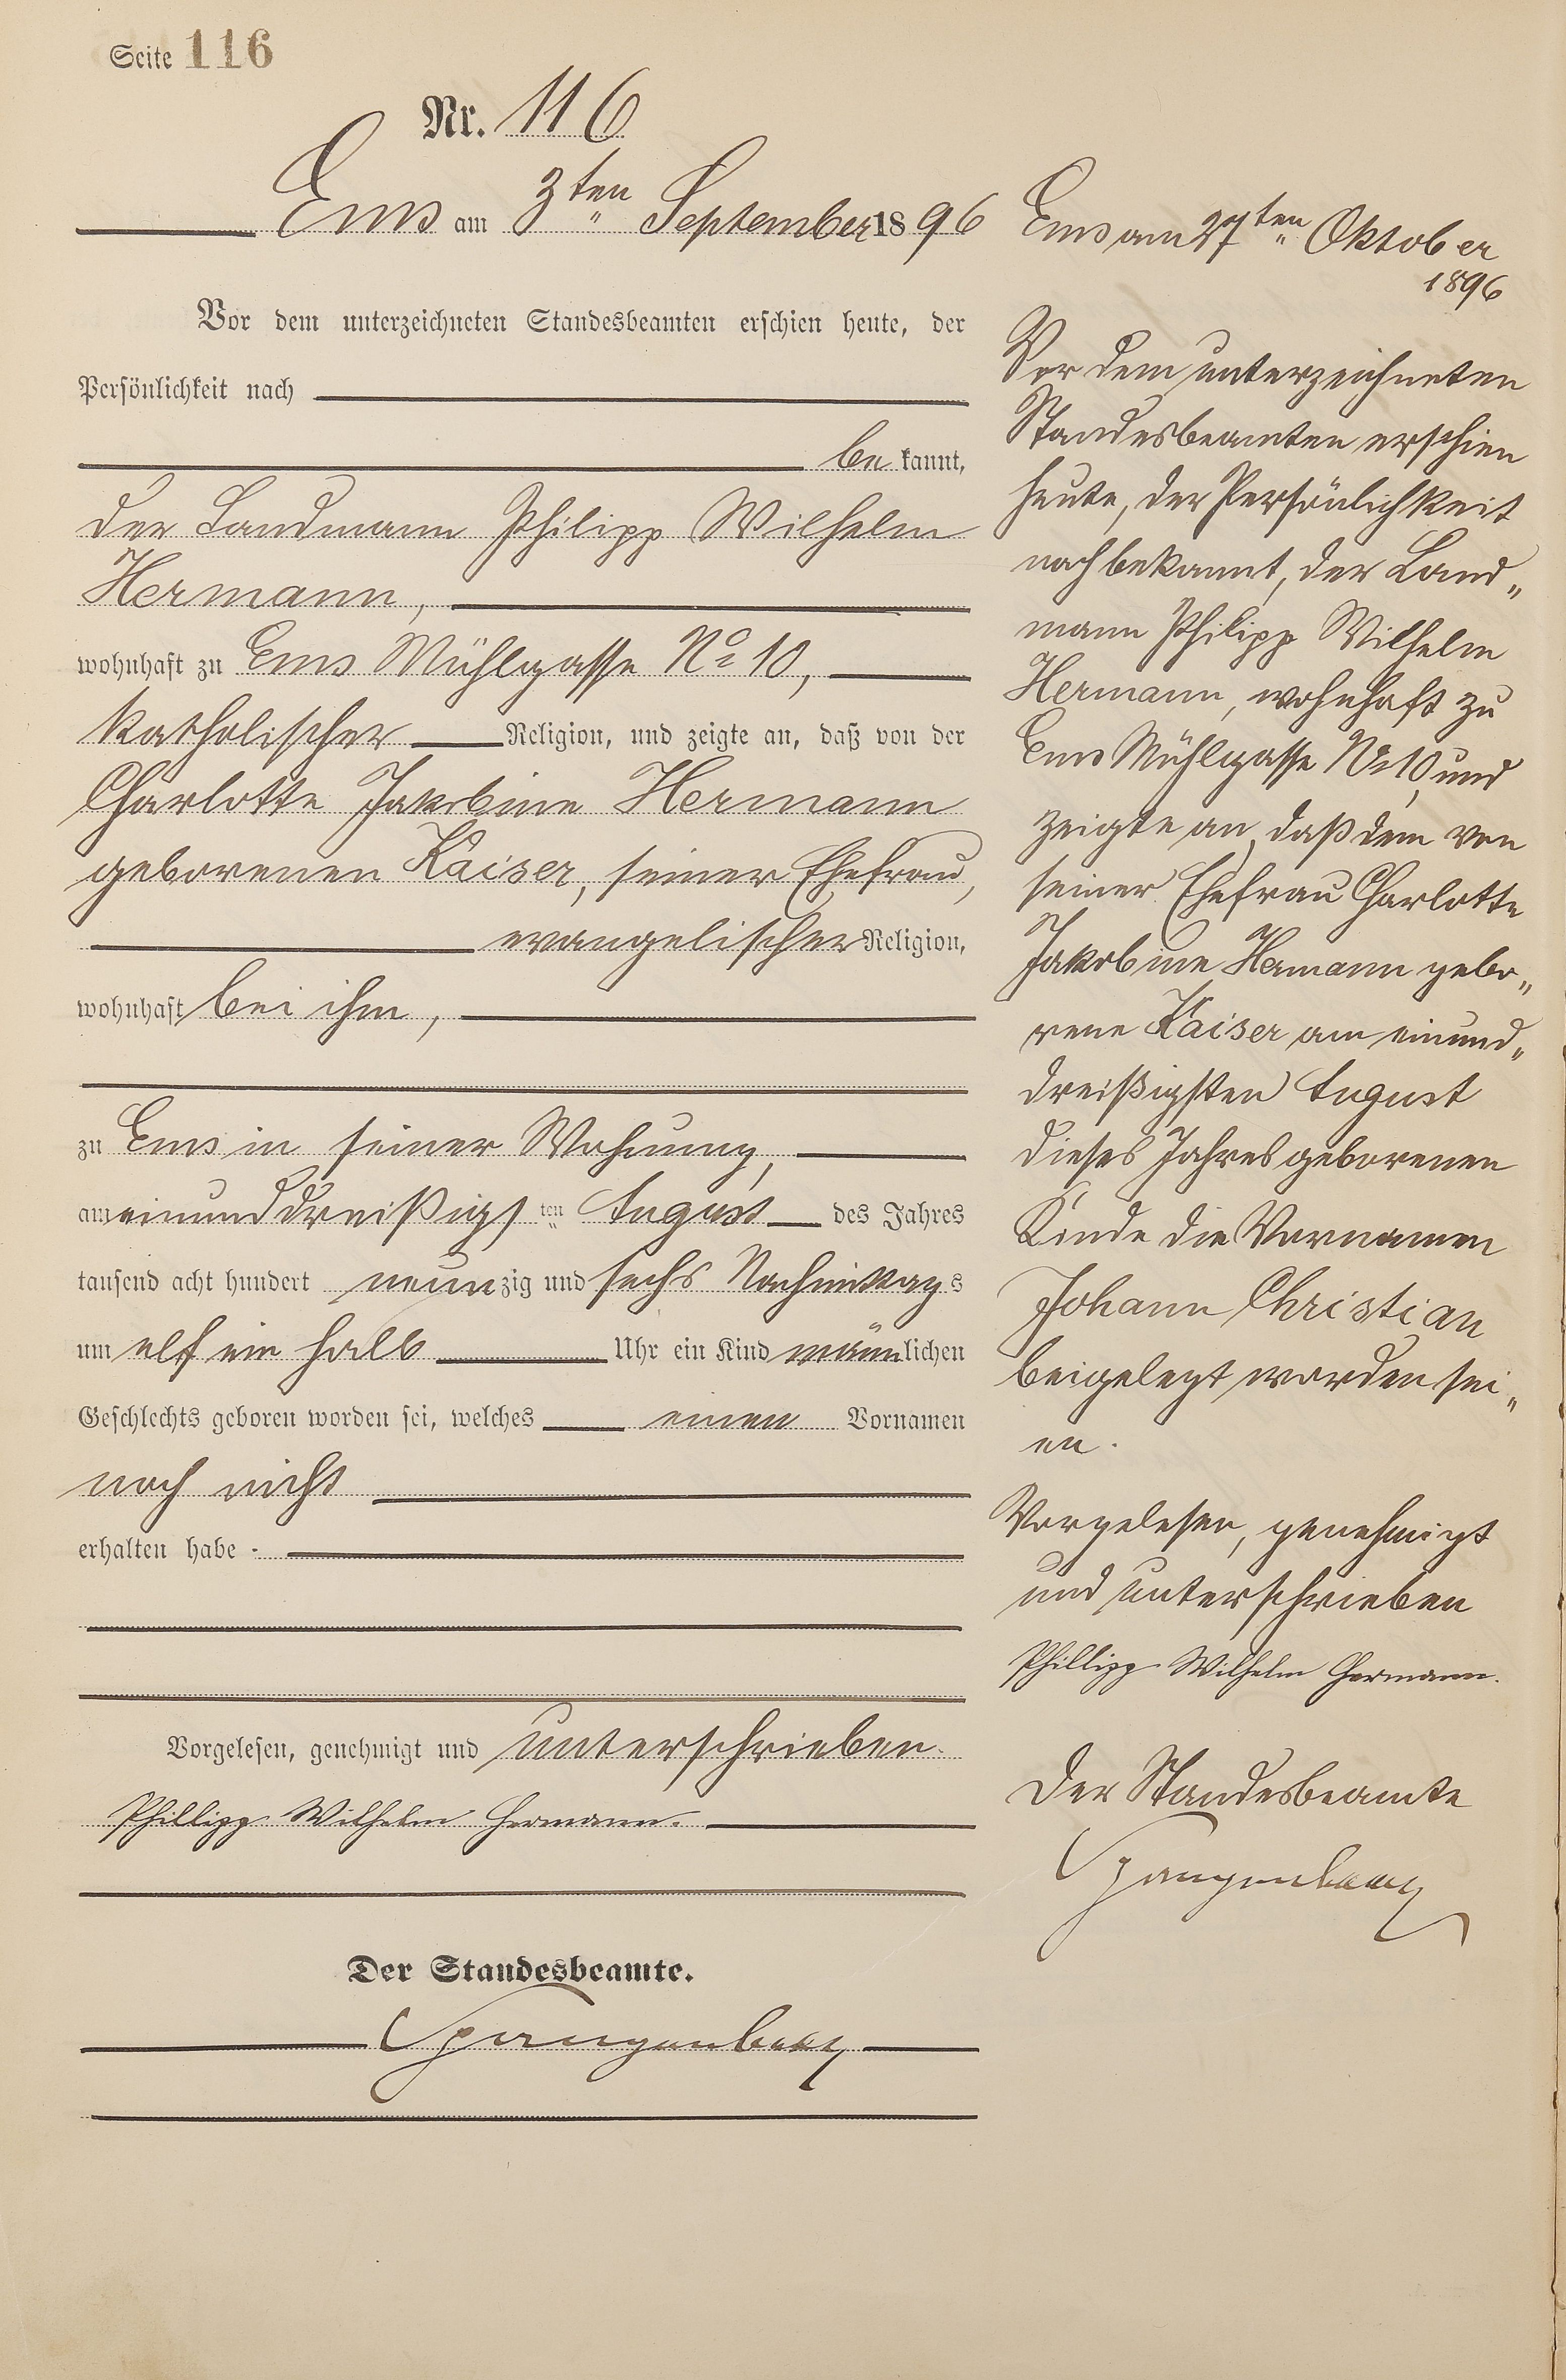 Seite 116
Nr. 116
Ems am 3ten September 1896
Vor dem unterzeichneten Standesbeamten erschien heute, der
Persönlichkeit nach
be kannt,
der Landmann Philipp Wilhelm
Hermann,
wohnhaft zu Ems Mühlgasse No 10,
katholischer Religion, und zeigte an, daß von der
Charlotte Jakobine Hermann
geborenen Kaiser, seiner Ehefrau,
evangelischer Religion,
wohnhaft bei ihm,
zu Ems in seiner Wohnung,
am einunddreißigsten August des Jahres
tausend acht hundert neunzig und sechs Nachmittags
um elf ein halb Uhr ein Kind männlichen
Geschlechts geboren worden sei, welches einen Vornamen
noch nicht
erhalten habe.
Vorgelesen, genehmigt und unterschrieben.
Phillipp Wilhelm Hermann.
Der Standesbeamte.
Spangenberg
Ems am 27ten Oktober
1896
Vor dem unterzeichneten
Standesbeamten erschien
heute, der Persönlichkeit
nach bekannt, der Land„
mann Philipp Wilhelm
Hermann, wohnhaft zu
Ems Mühlgasse No 10, und
zeigte an, daß dem von
seiner Ehefrau Charlotte
Jakobine Hermann gebo„
rene Kaiser am einund„
dreißigsten August
dieses Jahres geborenen
Kinde die Vornamen
Johann Christian
beigelegt worden sei„
en.
Vorgelesen, genehmigt
und unterschrieben
Phillipp Wilhelm Hermann.
Der Standesbeamte
Spangenberg